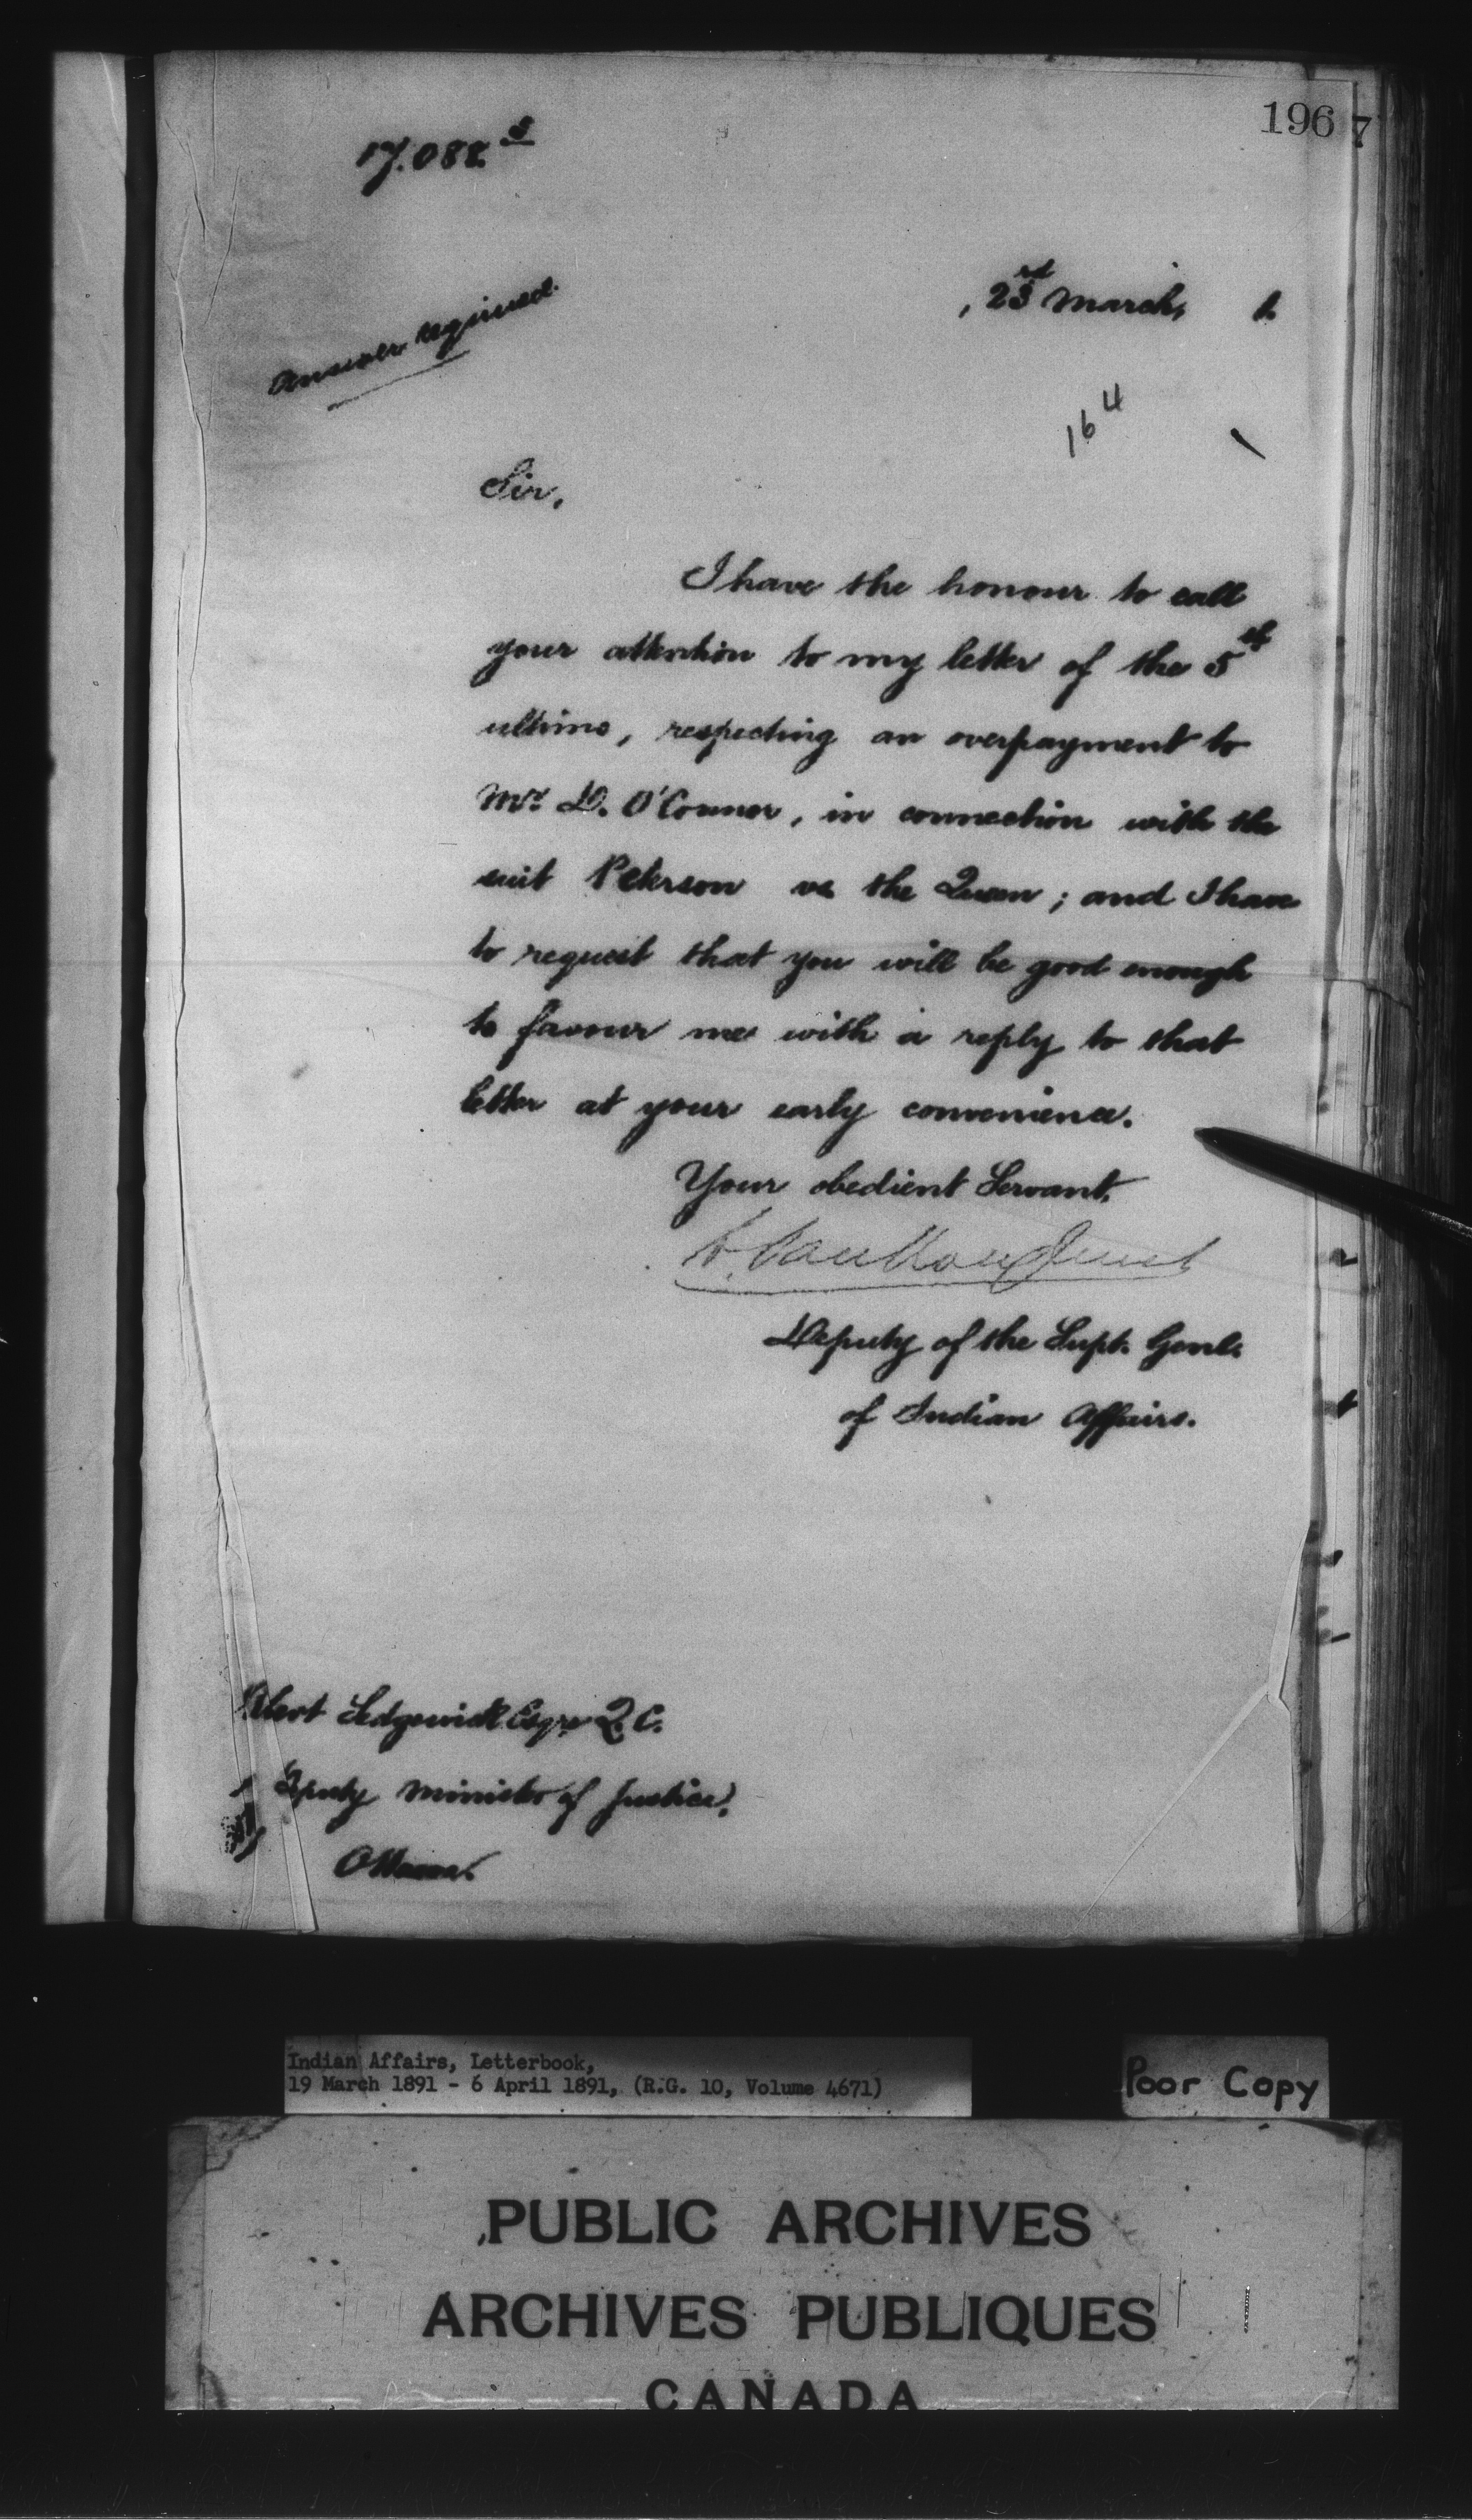 196
7
17.088
Answer required.
, 23rd March, 1.
164
Sir,
I have the honour to call
your attention to my letter of the 5th
ultimo, respecting an overpayment to
Mr. D. O'Connor, in connection with the
suit Peterson vs the Queen; and I have
to request that you will be good enough
to favour me with a reply to that
letter at your early convenience.
Your obedient Servant,
L. VanKoughnet
Deputy of the Supt. Genl.
of Indian Affairs.
Sedgewick Esqre Q.C.
Deputy Minister of Justice,
Ottawa.
Indian Affairs, Letterbook,
19 March 1891 - 6 April 1891, (R.G. 10, Volume 4671)
Poor Copy
PUBLIC ARCHIVES
ARCHIVES PUBLIQUES
CANADA